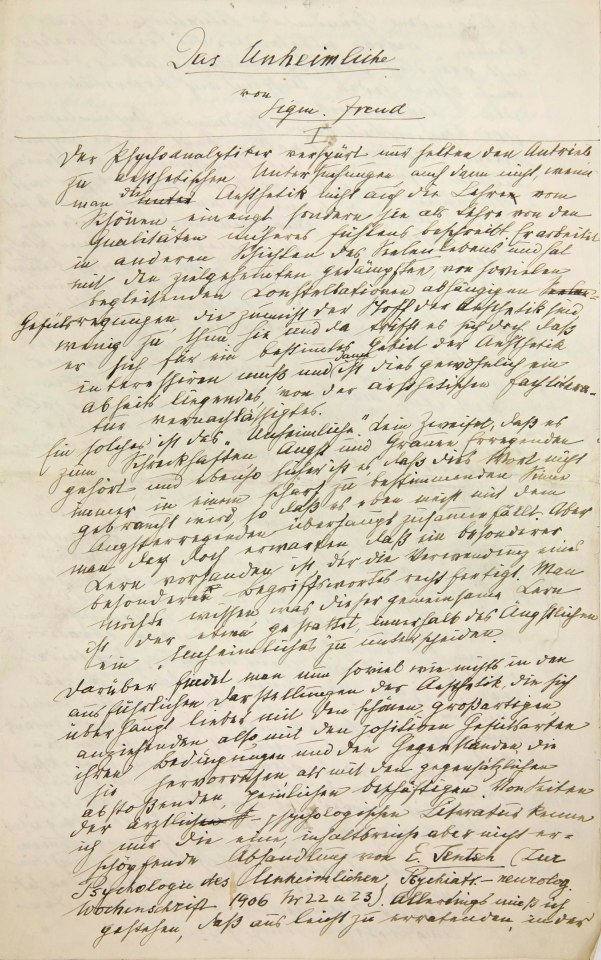 Das Unheimliche
von
Sigm. Freud
I.
Der Psychoanalytiker verspürt nur selten den Antrieb
zu aesthetischen Untersuchungen auch dann nicht wenn
man die Aesthetik nicht auf die Lehre vom
Schönen einengt sondern sie als Lehre von den
Qualitäten unseres Fühlens beschreibt. Er arbeitet
in anderen Schichten des Seelenlebens und hat
mit den zielgehemten gedämpften von sovielen
begleitenden Constellationen abhängigen
Gefühlsregungen, die zumeist der Stoff der Aesthetik sind,
wenig zu thun. Hie und da trifft es sich doch, daß
er sich für ein bestimmtes Gebiet der Aesthetik
interessiren muß und dann ist dies gewöhnlich ein
abseits liegendes, von der aesthetischen Fachlitera-
tur vernachläßigtes.
Ein solches ist das „Unheimliche". Kein Zweifel, daß es
zum Schreckhaften Angst und Grauen Erregenden
gehört und ebenso sicher ist es, daß dies Wort nicht
immer in einem scharf zu bestimmenden Sinne
gebraucht wird, so daß es eben meist mit dem
Angsterregenden überhaupt zusammenfällt. Aber
man darf doch erwarten, daß ein besonderer
Kern vorhanden ist, der die Verwendung eines
besonderen Begriffswortes rechtfertigt. Man
möchte wissen was dieser gemeinsame Kern
ist der etwa gestattet, innerhalb des Ängstlichen
ein „Unheimliches" zu unterscheiden.
Darüber findet man nun soviel wie nichts in den
ausführlichen Darstellungen der Aesthetik, die sich
überhaupt lieber mit den schönen, großartigen
anziehenden also mit den positiven Gefühlsarten
ihren Bedingungen und den Gegenständen, die
sie hervorrufen als mit den gegensätzlichen
abstoßenden, peinlichen beschäftigen. Von Seiten
der ärztlich - psychologischen Literatur kenne
ich nur die eine, inhaltsreiche aber nicht er-
schöpfende Abhandlung von E. Jentsch (Zur
Psychologie des Unheimlichen, Psychiatr.-neurolog.
Wochenschrift 1906 Nr 22 u 23). Allerdings muß ich
gestehen, daß aus leicht zu erratenden, in der